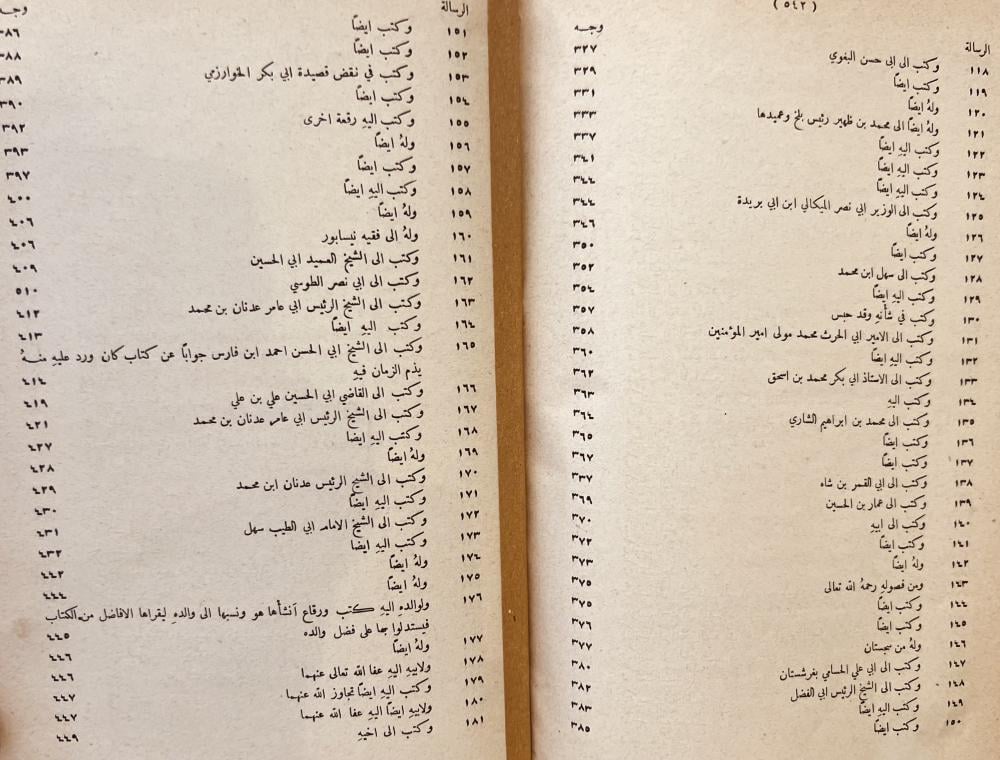 (٥٤٢)
الرسالة وجه
١١٨ وكتب الى ابي حسن البغوي ٣٢٧
١١٩ وكتب ايضاً ٣٢٩
١٢٠ ولهُ ايضاً ٣٣١
١٢١ ولهُ ايضاً الى محمد بن ظهير رئيس بلخ وعميدها ٣٣٣
١٢٢ وكتب اليهِ ايضاً ٣٣٧
١٢٣ وكتب اليهِ ايضاً ٣٤١
١٢٤ وكتب اليهِ ايضاً ٣٤٤
١٢٥ وكتب الى الوزير ابي نصر الميكالي ابن ابي بريدة ٣٤٤
١٢٦ ولهُ ايضاً ٣٤٦
١٢٧ وكتب ايضاً ٣٥٠
١٢٨ وكتب الى سهل ابن محمد ٣٥٢
١٢٩ وكتب اليهِ ايضاً ٣٥٤
١٣٠ وكتب في شأنهِ وقد حبس ٣٥٧
١٣١ وكتب الى الامير ابي الحرث محمد مولى امير المؤمنين ٣٥٨
١٣٢ وكتب اليهِ ايضاً ٣٦٠
١٣٣ وكتب الى الاستاذ ابي بكر محمد بن اسحق ٣٦٢
١٣٤ وكتب اليهِ ٣٦٣
١٣٥ وكتب الى محمد بن ابراهيم الشاري ٣٦٤
١٣٦ وكتب ايضاً ٣٦٥
١٣٧ وكتب ايضاً ٣٦٧
١٣٨ وكتب الى ابي القمر بن شاه ٣٣٧
١٣٩ وكتب الى عمار بن الحسين ٣٦٩
١٤٠ وكتب الى ابيهِ ٣٧٠
١٤١ وكتب ايضاً ٣٧٢
١٤٢ ولهُ ايضاً ٣٧٣
١٤٣ ومن فصولهِ رحمهُ الله تعالى ٣٧٥
١٤٤ وكتب ايضاً ٣٧٥
١٤٥ وكتب ايضاً ٣٧٦
١٤٦ ولهُ من سجستان ٣٧٧
١٤٧ وكتب الى ابي علي الحسامي بغرشستان ٣٨٠
١٤٨ وكتب الى الشيخ الرئيس ابي الفضل ٣٨٢
١٤٩ وكتب اليهِ ايضاً ٣٨٣
١٥٠ وكتب ايضاً ٣٨٥
الرسالة وجه
١٥١ وكتب ايضاً ٣٨٦
١٥٢ وكتب ايضاً ٣٨٨
١٥٣ وكتب في نقض قصيدة ابي بكر الخوارزمي ٣٨٩
١٥٤ وكتب ايضاً ٣٩٠
١٥٥ وكتب اليهِ رقعة اخرى ٣٩٢
١٥٦ ولهُ ايضاً ٣٩٣
١٥٧ وكتب ايضاً ٣٩٧
١٥٨ وكتب اليهِ ايضاً ٤٠٠
١٥٩ ولهُ ايضاً ٤٠٦
١٦٠ ولهُ الى فقيه نيسابور ٤٠٦
١٦١ وكتب الى الشيخ العميد ابي الحسين ٤٠٩
١٦٢ وكتب الى ابي نصر الطوسي ٥١٠
١٦٣ وكتب الى الشيخ الرئيس ابي عامر عدنان بن محمد ٤١٢
١٦٤ وكتب اليهِ ايضاً ٤١٣
١٦٥ وكتب الى الشيخ ابي الحسن احمد ابن فارس جواباً عن كتاب كان ورد عليهِ منهُ
يذم الزمان فيهِ ٤١٤
١٦٦ وكتب الى القاضي ابي الحسين علي بن علي ٤١٩
١٦٧ وكتب الى الشيخ الرئيس ابي عامر عدنان بن محمد ٤٢١
١٦٨ وكتب اليهِ ايضاً ٤٢٧
١٦٩ ولهُ ايضاً ٤٢٨
١٧٠ وكتب الى الشيخ الرئيس عدنان ابن محمد ٤٢٩
١٧١ وكتب اليهِ ايضاً ٤٣٠
١٧٢ وكتب الى الشيخ الامام ابي الطيب سهل ٤٣١
١٧٣ وكتب اليهِ ايضاً ٤٣٢
١٧٤ ولهُ ايضاً ٤٤٢
١٧٥ ولهُ ايضاً ٤٤٤
١٧٦ ولوالدهِ اليهِ كتب ورقاع أنشأها هو ونسبها الى والدهِ ليقراها الافاضل من الكتاب
فيستدلوا بها على فضل والده ٤٤٥
١٧٧ ولهُ ايضاً ٤٤٦
١٧٨ ولابيهِ اليهِ عفا الله تعالى عنهما ٤٤٦
١٧٩ وكتب اليهِ ايضاً تجاوز الله عنهما ٤٤٧
١٨٠ ولابيهِ ايضاً اليهِ عفا الله عنهما ٤٤٧
١٨١ وكتب الى اخيهِ ٤٤٩